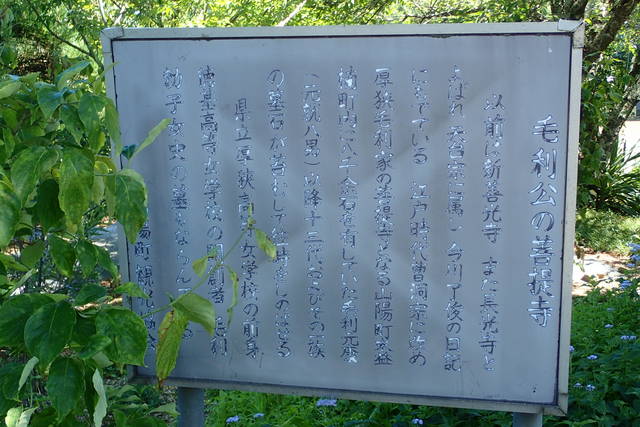 毛利公の菩提寺
以前は新善光寺 また長光寺と
よばれ 天台宗に属し 今川了俊の日記
にもでている 江戸時代曹洞宗に改め
厚狭毛利家の菩提寺となる 山陽町
町内で八千余石を有していた毛利元康
(元就八男)以降十三代およびその一族
の墓石が苔むして往事をしのばせる
県立厚狭高等女学校の前身
徳基高等女学校の創創者 毛利
勅子女史の墓もならん
陽町 観光協会